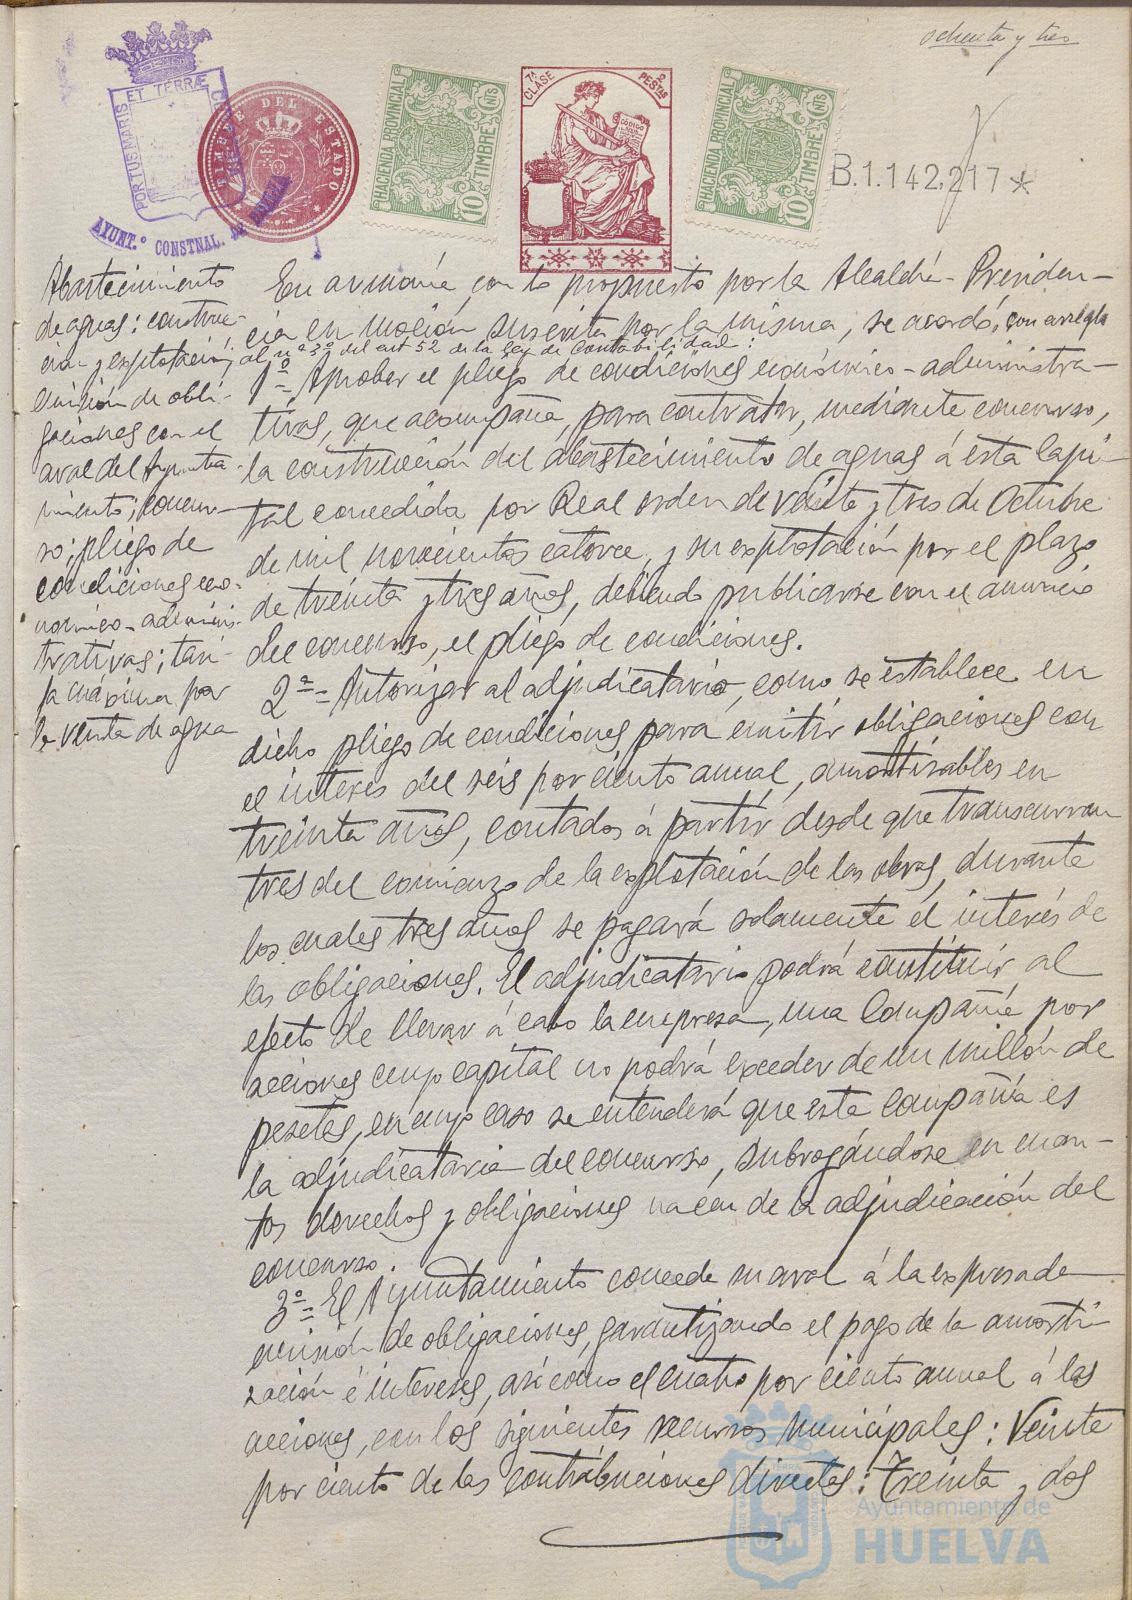 ochenta y tres
PORTUS MARIS ET TERRÆ CUSTODIA
AYUNT.º CONSTNAL. DE HUELVA
TIMBRE DEL ESTADO
HACIENDA PROVINCIAL
10 CNTS
TIMBRE
7ª CLASE
2 PESTAS
CÓDIGO
HACIENDA PROVINCIAL
10 CNTS
TIMBRE
B.1.142,217*
Abastecimiento
de aguas: construc-
ción y explotación;
emisión de obli-
gaciones con el
aval del Ayunta-
miento; concur-
so; pliego de
condiciones eco-
nómico-adminis-
trativas; tari-
fa máxima por
la venta de agua
En armonía con lo propuesto por la Alcaldía-Presiden-
cia en moción suscrita por la misma, se acordó, con arreglo
al nº 3º del art 52 de la Ley de Contabilidad:
1º= Aprobar el pliego de condiciones económico-administra-
tivas, que acompaña, para contratar, mediante concurso,
la construcción del abastecimiento de aguas á esta Capi-
tal concedida por Real orden de veinte y tres de Octubre
de mil novecientos catorce, y su explotación por el plazo
de treinta y tres años, debiendo publicarse con el anuncio
del concurso, el pliego de condiciones.
2º= Autorizar al adjudicatario, como se establece en
dicho pliego de condiciones, para emitir obligaciones con
el interés del seis por ciento anual, amortizables en
treinta años, contados á partir desde que transcurran
tres del comienzo de la explotación de las obras, durante
los cuales tres años se pagará solamente el interés de
las obligaciones. El adjudicatario podrá constituir al
efecto de llevar á cabo la empresa, una Compañía por
acciones cuyo capital no podrá exceder de un millón de
pesetas, en cuyo caso se entenderá que esta Compañía es
la adjudicataria del concurso, subrogándose en cuan-
tos derechos y obligaciones nacen de la adjudicación del
concurso.
3º= El Ayuntamiento concede su aval á la expresada
emisión de obligaciones, garantizando el pago de la amorti-
zación é intereses, así como el cuatro por ciento anual á las
acciones, con los siguientes recursos municipales: Veinte
por ciento de las contribuciones directas: Treinta y dos
Ayuntamiento de
HUELVA